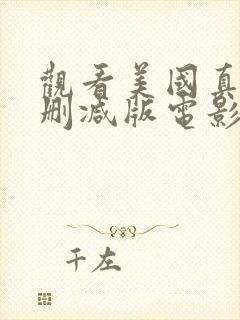 觀看美國真
刪減版電影
千左